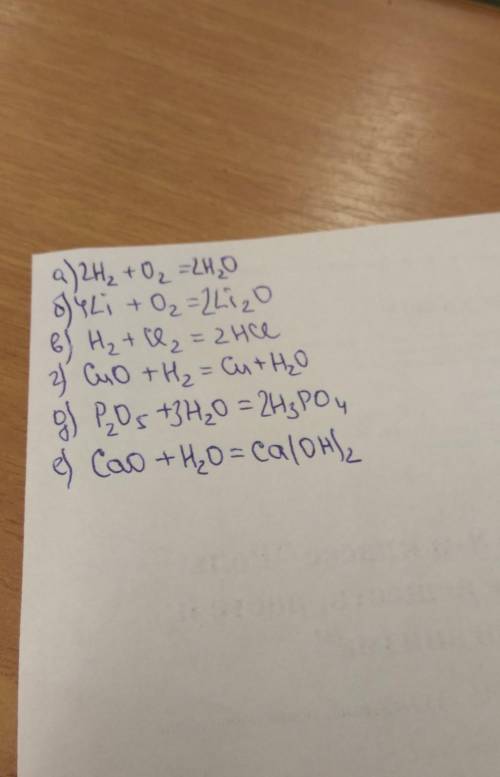 а) 2H₂ + O₂ = 2H₂O
б) 4Li + O₂ = 2Li₂O
в) H₂ + Cl₂ = 2HCl
г) CuO + H₂ = Cu + H₂O
д) P₂O₅ + 3H₂O = 2H₃PO₄
е) CaO + H₂O = Ca(OH)₂